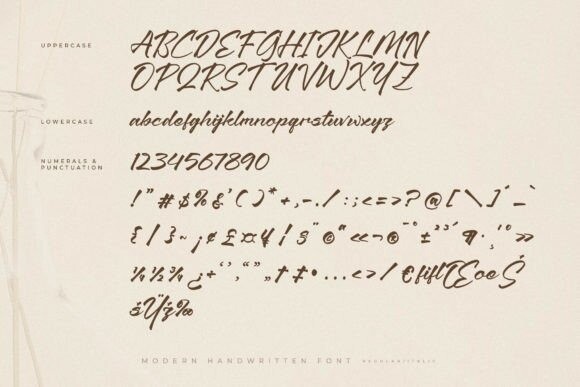 UPPERCASE
ABCDEFGHIJKLMN
OPQRSTUVWXYZ
LOWERCASE
abcdefghijklmnopqrstuvwxyz
NUMERALS &
PUNCTUATION
1234567890
!"#$%&'()*+,-./:;<=>?@[\]´_`
{|}~¡¢£¤¥¦§¨©ª«¬®¯°±²³´¶·¸¹º»
¼½¾¿÷‘’‚“”„†‡•…‹›⁄€fiflŒœŠ
šŸž‰
MODERN HANDWRITTEN FONT REGULAR/ITALIC